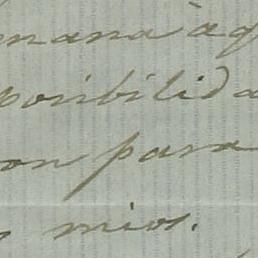 mana à q
posibilida
on para
mios.